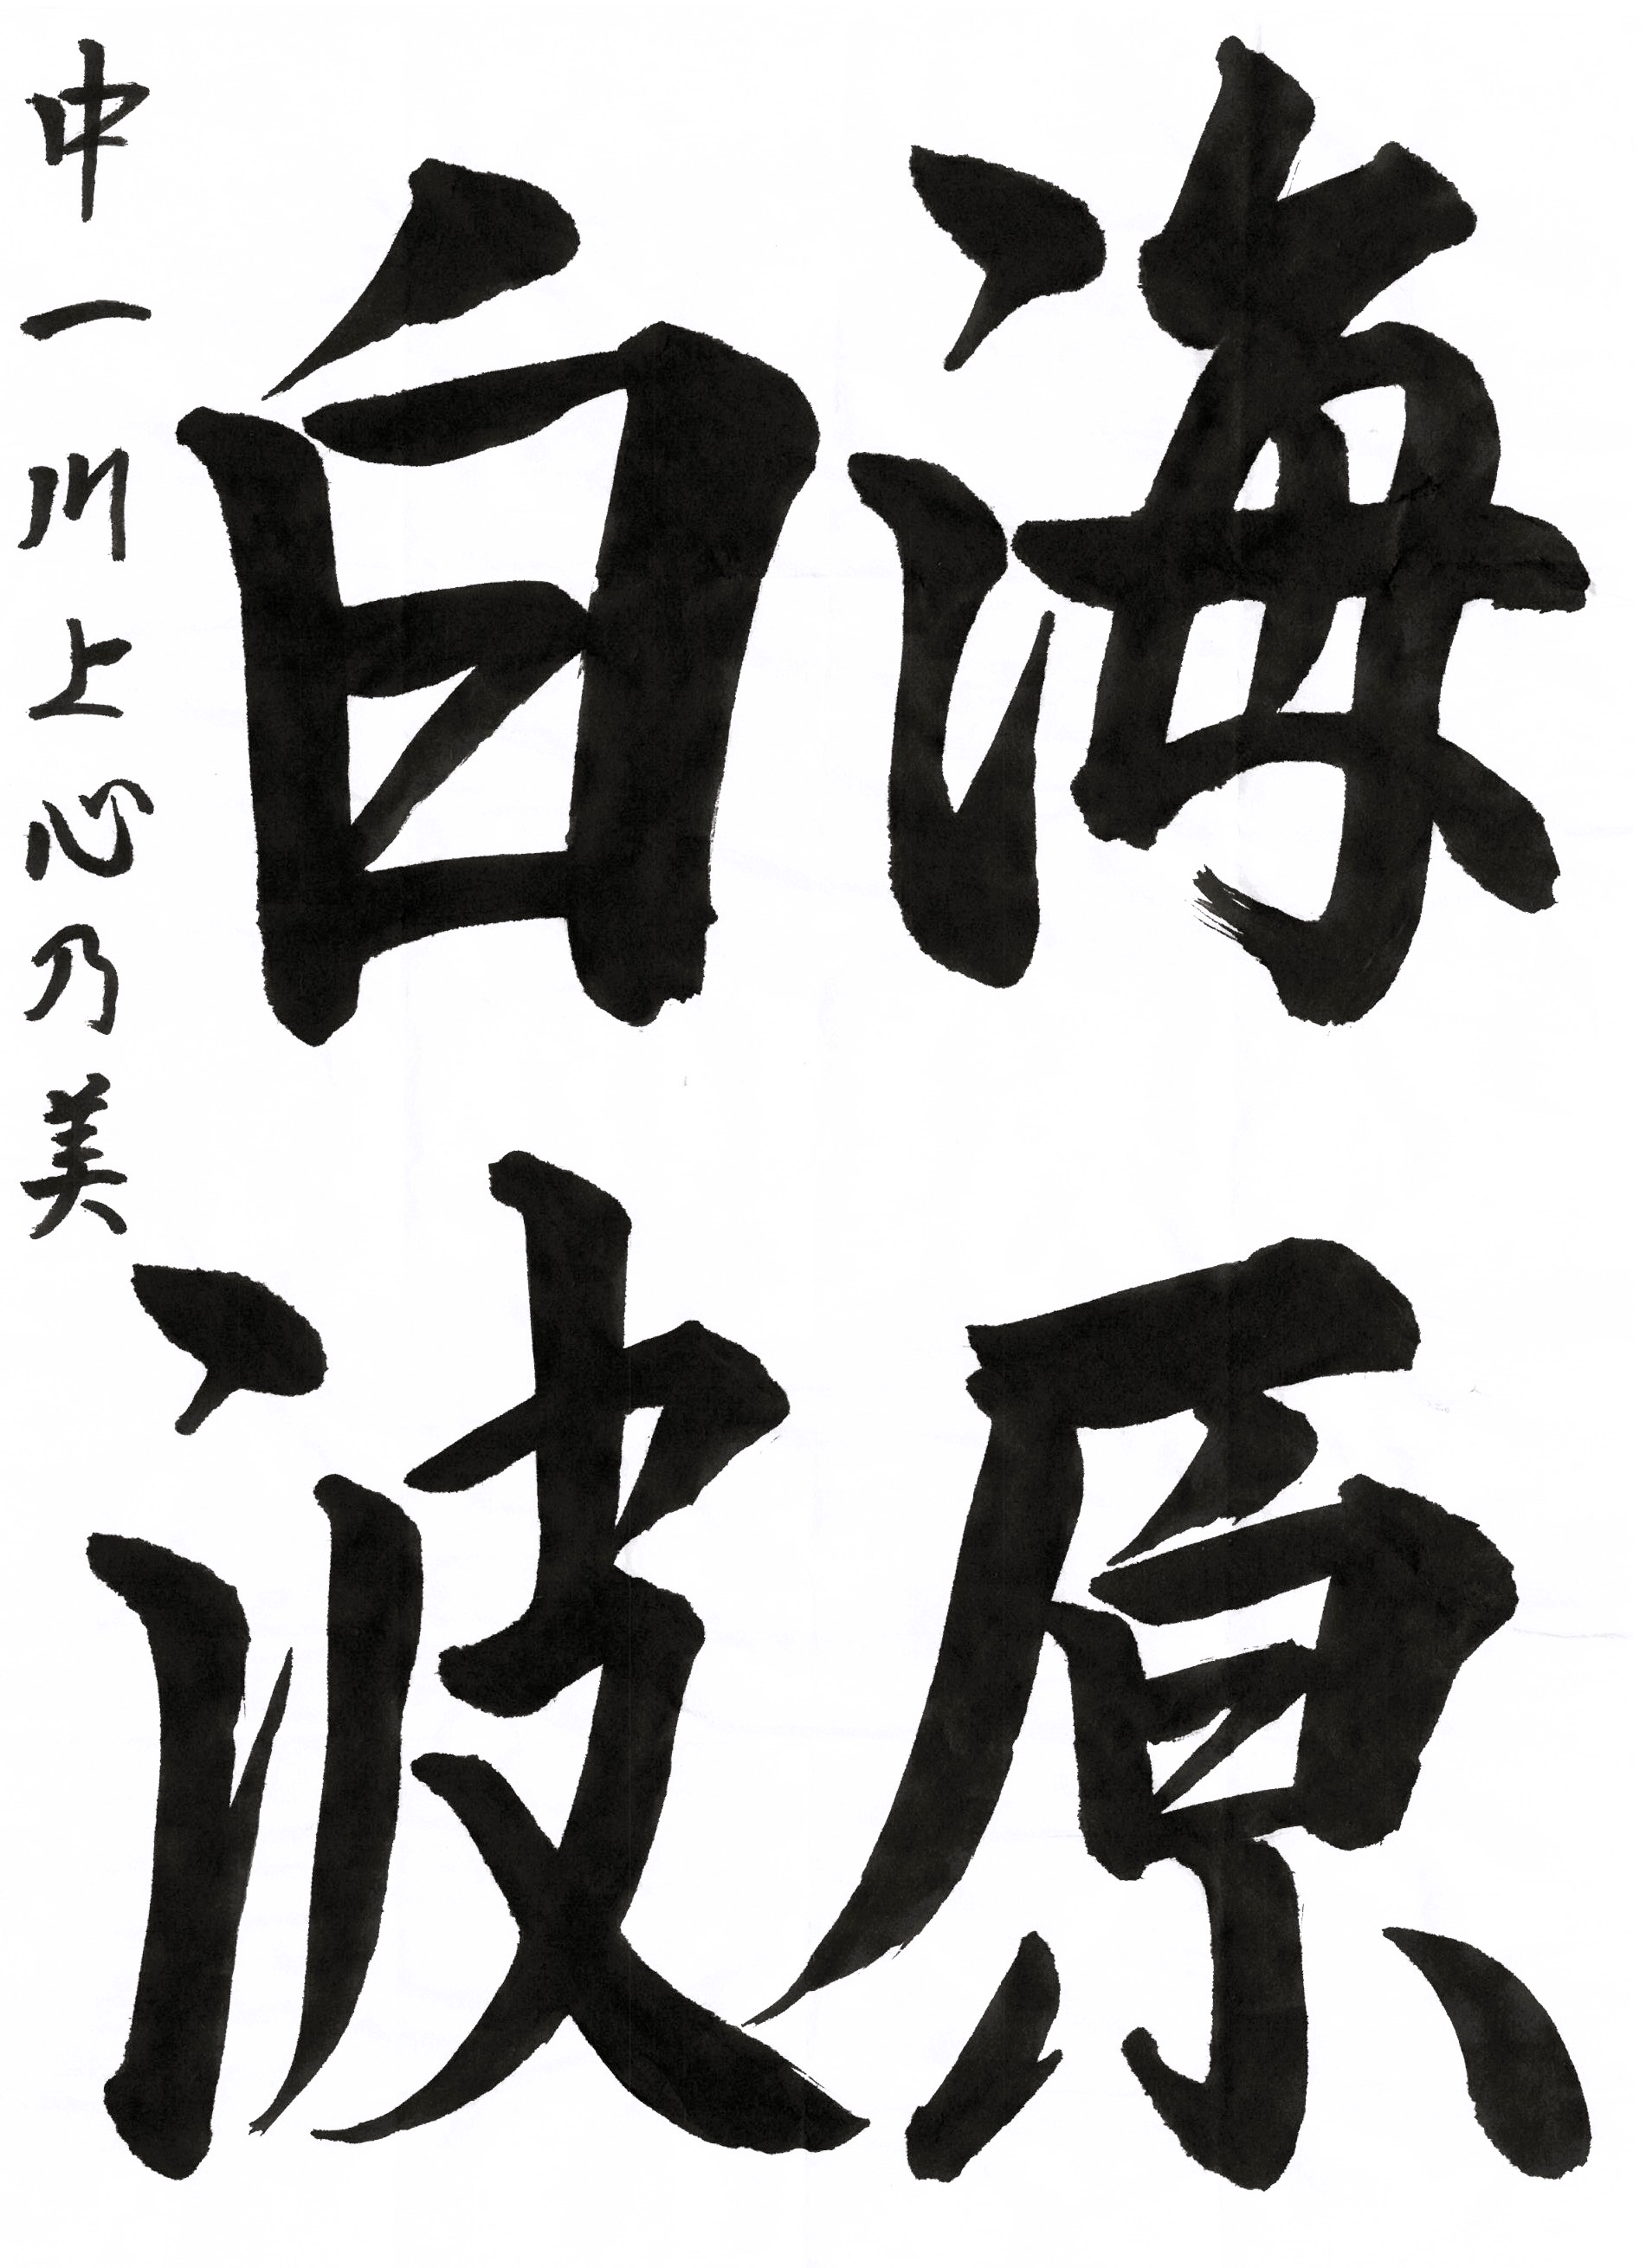 海原
白波
中一川上心乃美